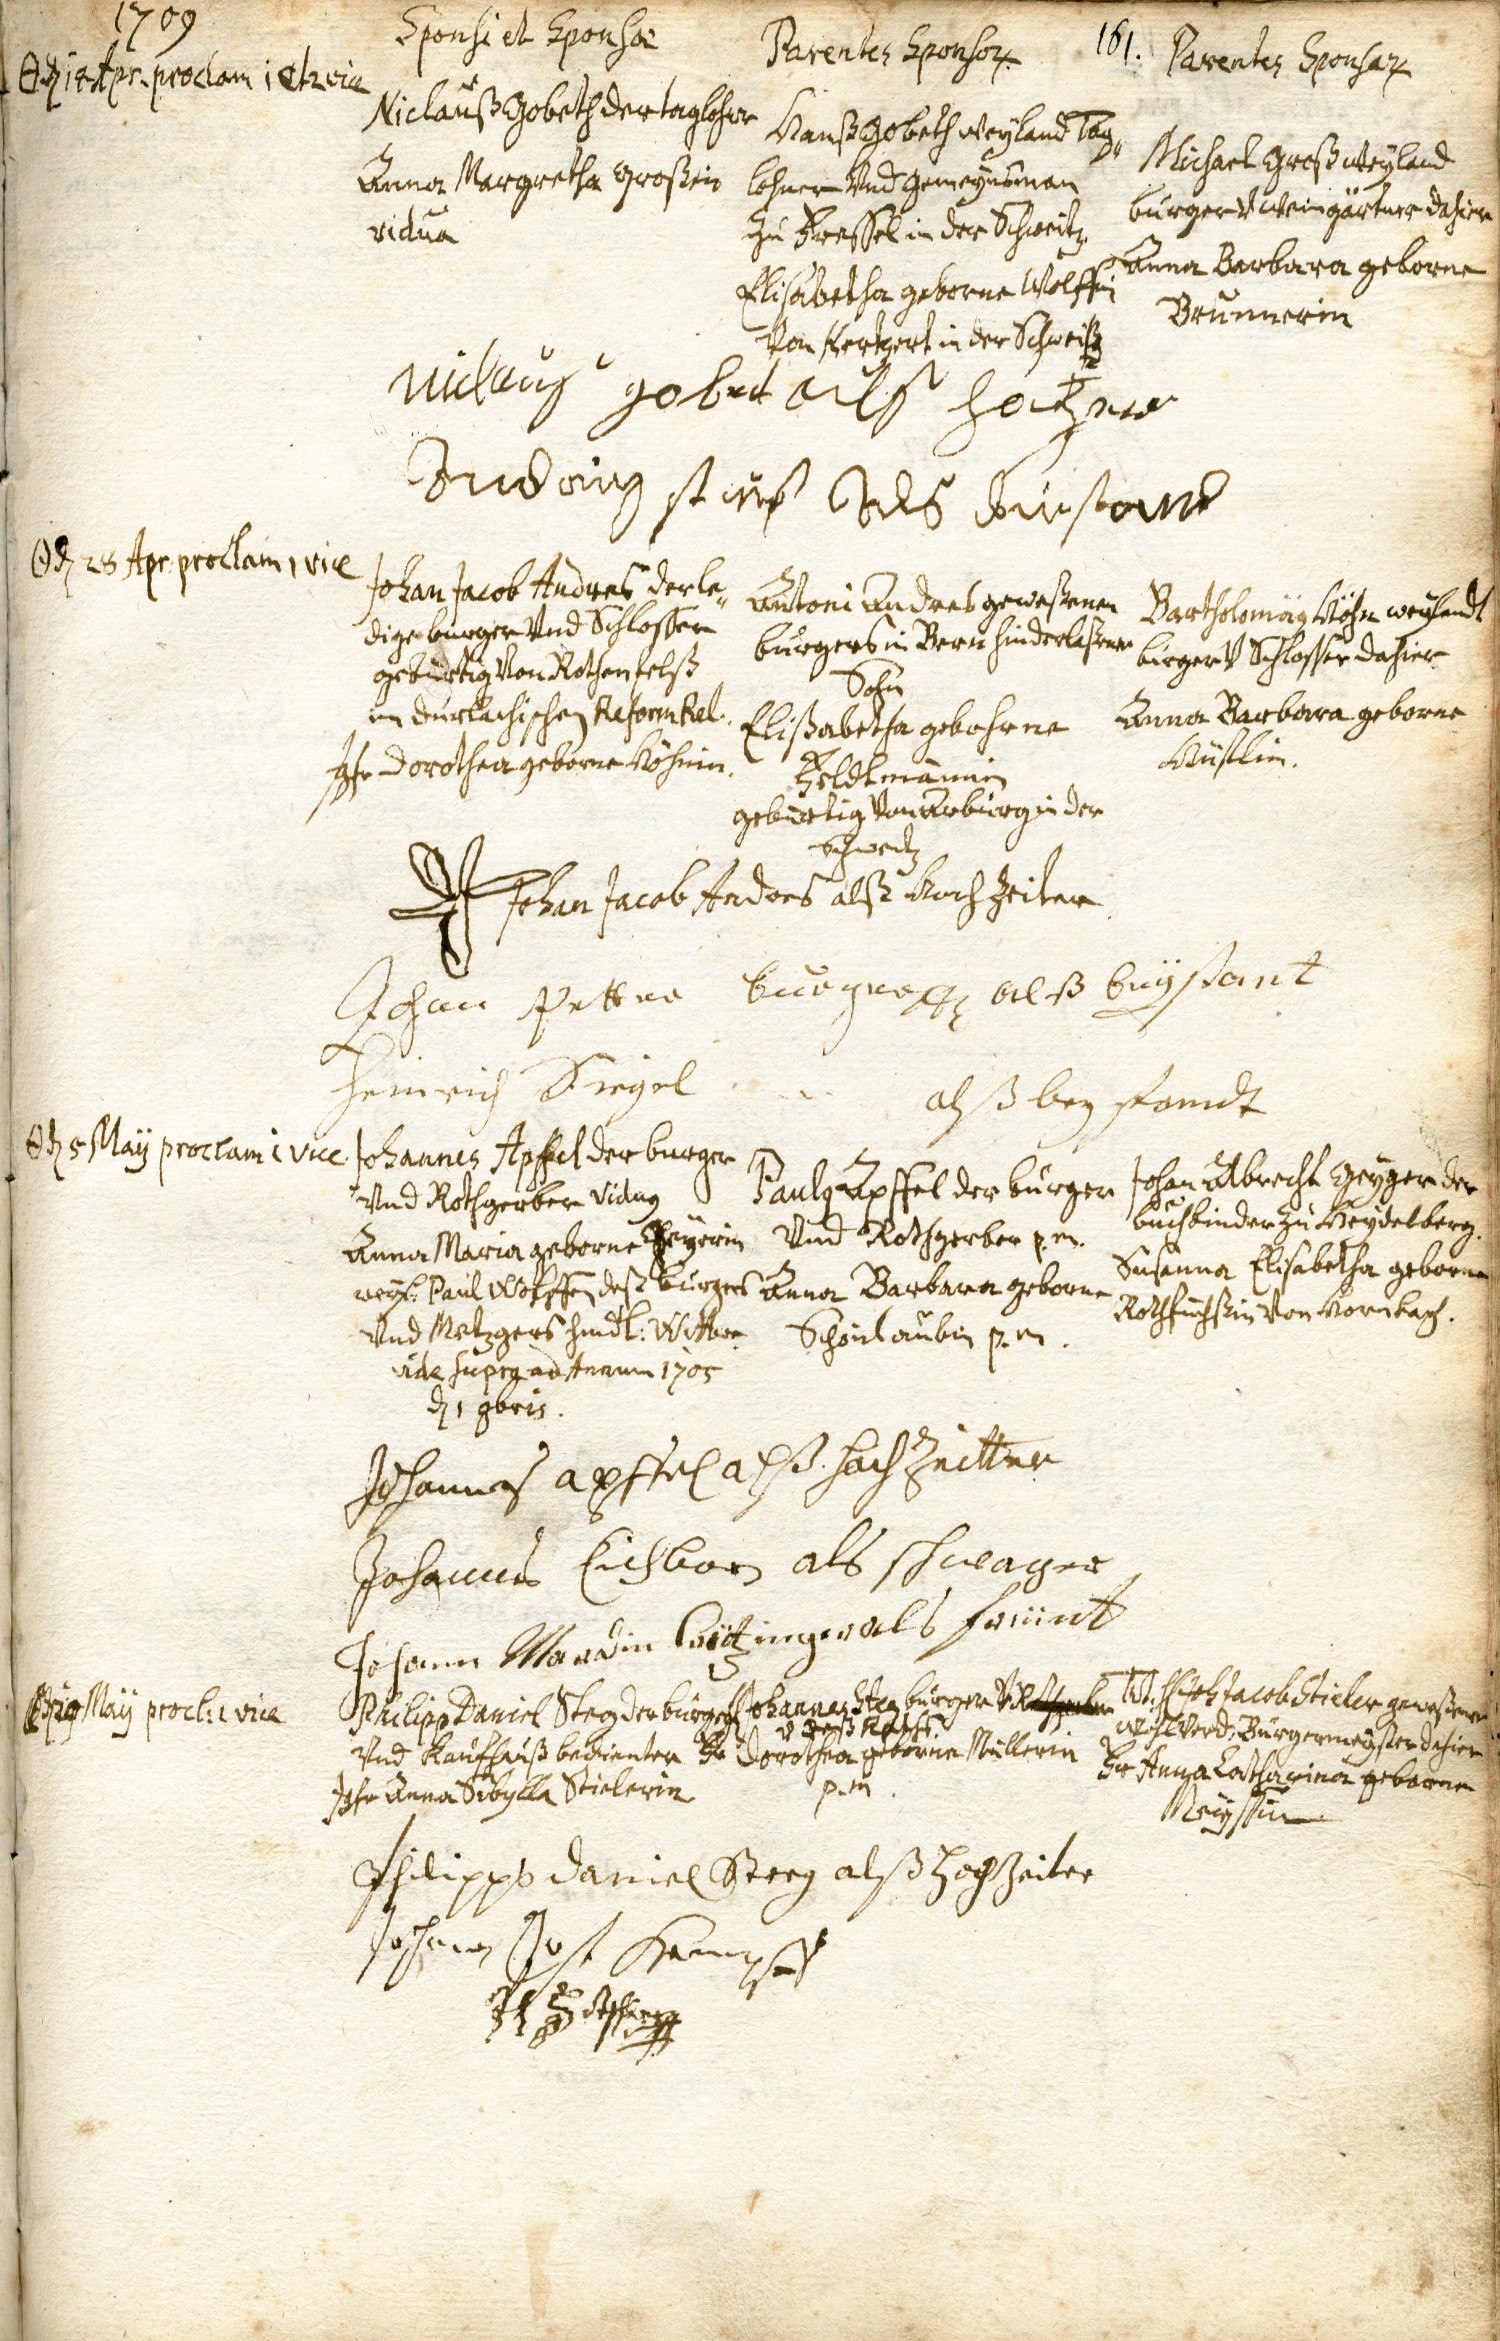 1709
Sponsi et Sponsae
Parentes Sponsor.
161.
Parentes Sponsar.
14 Apr. proclam 1 et 2 vice
Niclauß Gobeth der taglohner
Anna Margretha Großin
vidua
Hanß Gobeth weyland Tag„
lohner Vnd gemeynsman
zu Fressel in der Schweitz
Elisabetha geborne Wolffin
Von Kertzert in der Schweitz
Michael Groß weyland
burger V Weingärtner dahier
Anna Barbara geborne
Brunnerin
Niclauß gobet alß
als
28 Apr: proclam 1 vice
Johan Jacob Andres der le„
dige burger Vnd Schlosser
gebürtig Von Rothenfelß
im durlachischen Reform Rel.
Jgfr Dorothea geborne Höhnin.
Antoni Andres geweßenen
burgers in Bern hinderlaßener
Sohn
Elißabetha gebohrne
Feldtmännin
gebürtig Von Arburg in der
schweitz
Bartholomäy Höhn weylandt
bürger V Schlosser dahier
Anna Barbara geborne
Küstlin.
Johan Jacob Andres alß Hochzeiter
Johan Petter alß beystant
Heinrich Siegel alß bey standt
5 May proclam 1 vice
Johannes Apffel der burger
Vnd Rothgerber viduus
Anna Maria geborne Geygerin
weyl: Paul Wolffen deß burgers
Vnd Metzgers hindl: Wittwe
vide supra ad Annum 1705
d 1 9bris.
Paulus Apffel der burger
Vnd Rothgerber p.m.
Anna Barbara geborne
Schönlaubin p.m.
Johan Albrecht Geyger der
buchbinder zu Heydelberg.
Susanna Elisabetha geborne
Rothfuchsin Von Hornbach.
Johannes apffel alß hochzeitter
Johannes Eichborn als schwager
Johann Mardin als freünt
19 May procl: 1 vice
Philipp Daniel Steeg der burger
Vnd Kauffhauß bedienter
Jgfr Anna Sibylla Stielerin
Johannes Steeg burger V
Dorothea geborne Müllerin
p.m.
Joh Jacob Stieler geweßener
Wohlverd: Burgermeyster dahier
Fr Anna Catharina geborne
Philipps Daniel Steeg alß Hochzeiter
Johann Jost Kempff